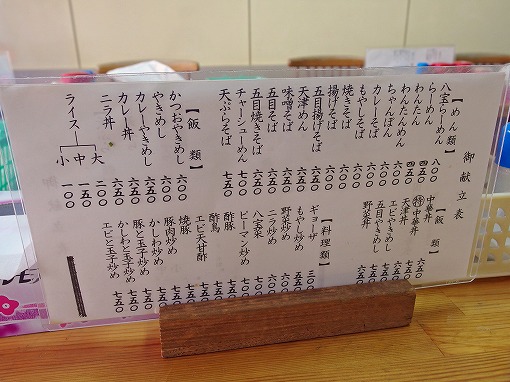 御献立表
【めん類】
八宝らーめん 八〇〇
らーめん 四五〇
わんたん 四五〇
わんたんめん
ちゃんぽん
カレーそば
もやしそば
焼きそば
揚げそば
五目揚げそば
天津めん
味噌そば
五目そば
五目焼きそば
チャーシューめん 七五〇
天ぷらそば 七五〇
【飯類】
かつおやきめし 六〇〇
やきめし
カレーやきめし 六五〇
カレー丼 六五〇
ニラ丼
ライス
大 二〇〇
中 一五〇
小 一〇〇
【飯類】
中華丼 六五〇
特中華丼 七五〇
天津丼
エビやきめし
五目やきめし
野菜丼
【料理類】
ギョーザ 三〇〇
もやし炒め
野菜炒め
ニラ炒め
八宝菜
ピーマン炒め
酢豚 七五〇
酢鳥 七五〇
エビ天甘酢 七五〇
焼豚 七五〇
豚肉炒め 七五〇
かしわ炒め 七五〇
豚と玉子炒め 七五〇
かしわと玉子炒め 七五〇
エビと玉子炒め 七五〇